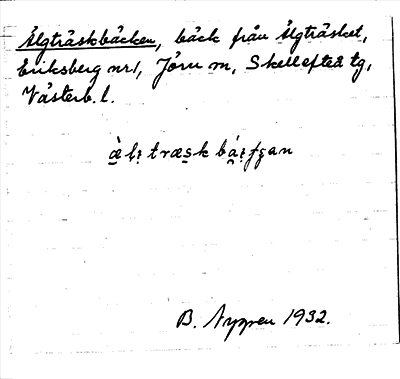 Älgträskbäcken, bäck från Älgträsket,
Eriksberg nr 1, Jörn sn, Skellefteå tg,
Västerb. l.
B. Nyppen 1932.